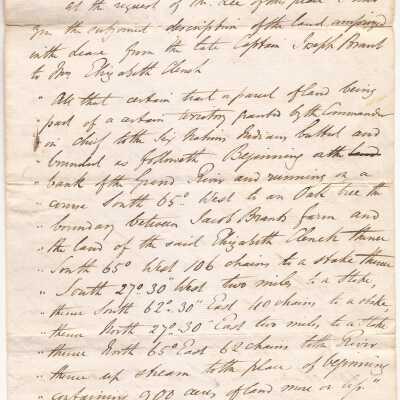 at the request of the
the subjoined description of the land
in the Lease from the late Captain Joseph Brant
to Mrs Elizabeth Clench
" All that certain tract a parcel of land being
" part of a certain territory granted by the Commander
" in chief to the Six Nations Indians butted and
" bounded as followeth Beginning
" bank of the Grand River and running on a
" course South 65° West to an Oak tree the
" boundary between Jacob Brants farm and
" the land of the said Elizabeth Clench thence
" South 65° West 106 chains to a stake thence
" South 27° 30" West two miles, to a stake,
" thence South 62° 30" East 40 chains to a stake,
" thence North 27° 30" East two miles, to a stake
" thence North 65° East 62 chains to the River
" thence up stream to the place of beginning
" containing 900 acres of land more or less."